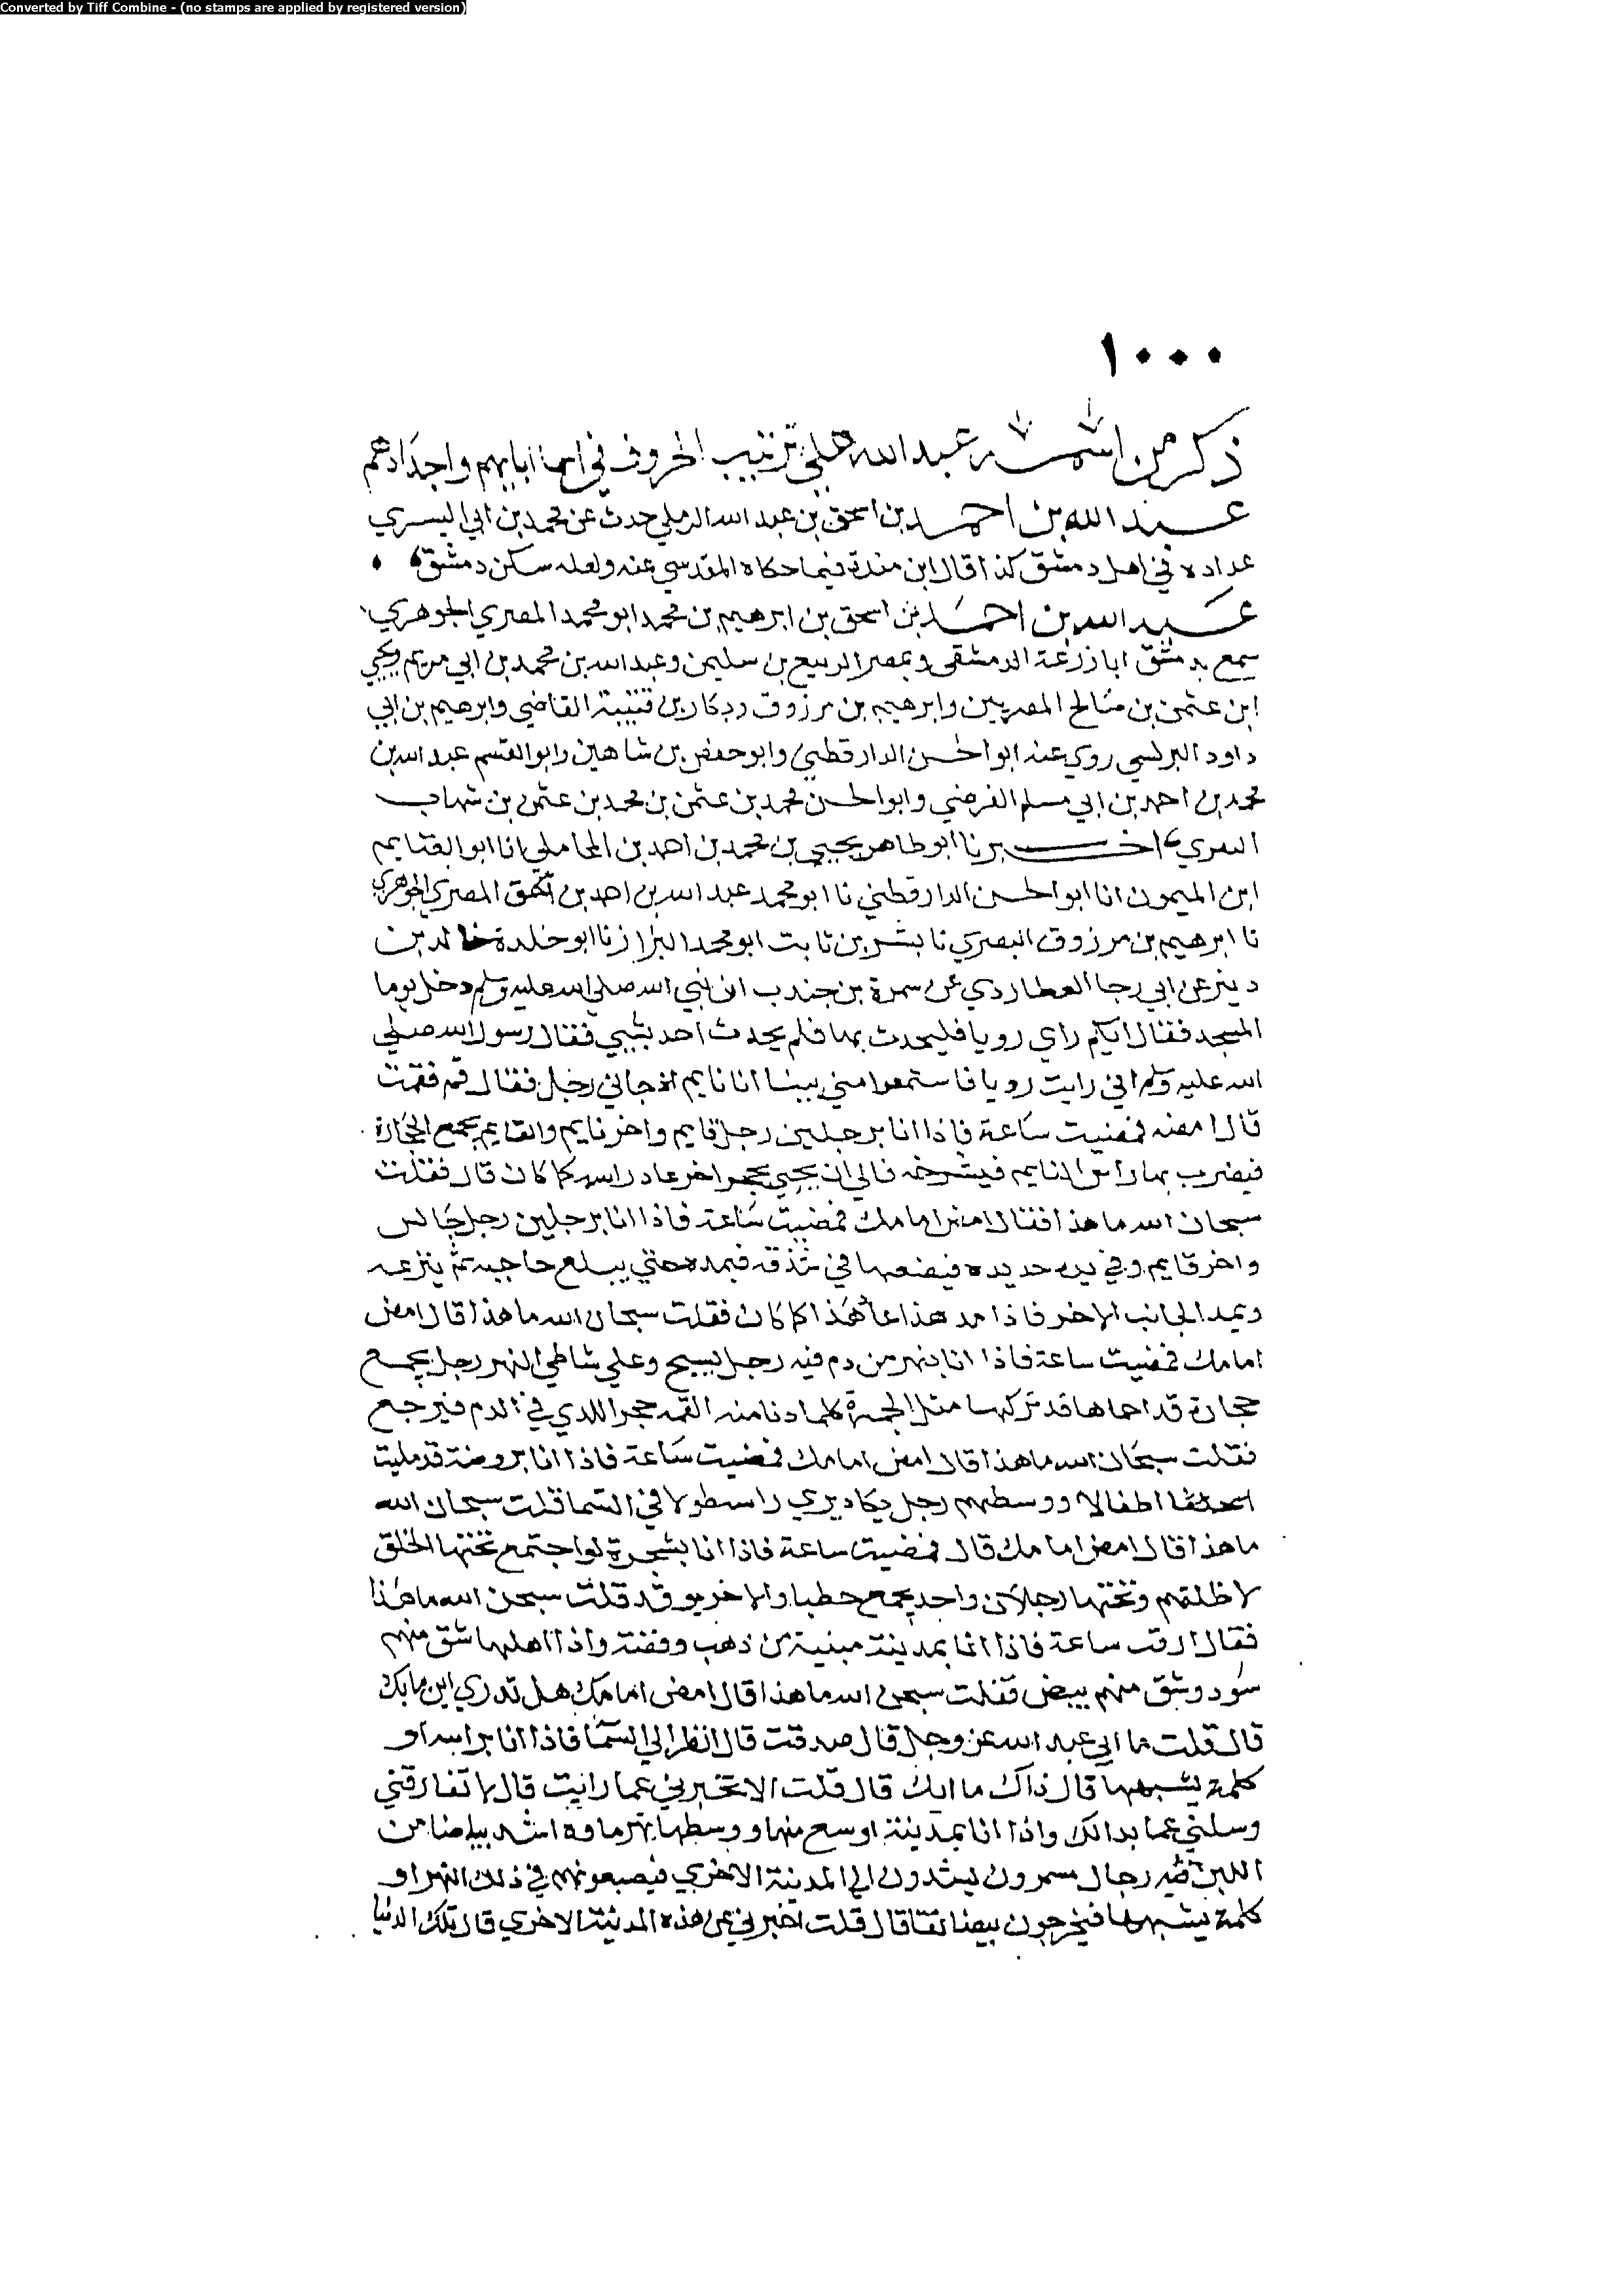 Converted by Tiff Combine - (no stamps are applied by registered version)
١٠٠٠
ذكر من اسمه عبد الله علي ترتيب الحروف في اسما ابايهم واجدادهم
عبد الله بن احمد بن اسحق بن عبد الله الرملي حدث عن محمد بن ابي اليسري
عداده في اهل دمشق كذا قال ابن مندة فيما حكاه المقدسي عنه ولعله سكن دمشق
عبد الله بن احمد بن اسحق بن ابرهيم بن محمد ابو محمد المصري الجوهري
سمع بدمشق ابا زرعة الدمشقي وبمصر الربيع بن سليمن وعبد الله بن محمد بن ابي مريم ويحيي
ابن عثمن بن صالح المصريين وابرهيم بن مرزوق وبكار بن قتيبة القاضي وابرهيم بن ابي
داود البرلسي روي عنه ابو الحسن الدارقطني وابو حفص بن شاهين وابو القسم عبد الله بن
محمد بن احمد بن ابي مسلم الفرضي وابو الحسن محمد بن عثمن بن محمد بن عثمن بن شهاب
السري اخبرنا ابو طاهر يحيي بن محمد بن احمد بن المحاملي انا ابو الغنايم
ابن الميمون انا ابو الحسن الدارقطني نا ابو محمد عبد الله بن احمد بن اسحق المصري الجوهري
نا ابرهيم بن مرزوق البصري نا بشر بن ثابت ابو محمد البزاز نا ابو خلدة خالد بن
دينر عن ابي رجا العطاردي عن سمرة بن جندب ان نبي الله صلي الله عليه وسلم دخل يوما
المسجد فقال ايكم راي رويا فليحدث بها فلم يحدث احد بشي فقال رسول الله صلي
الله عليه وسلم اني رايت رويا فاستمعوا مني بينا انا نايم اذ جاني رجل فقال قم فقمت
قال امضه فمضيت ساعة فاذا انا برجلين رجل قايم واخر نايم والقايم يجمع الحجارة
فيضرب بها راس النايم فيشدخه فالي ان يجيي بحجر اخر عاد راسه كما كان قال فقلت
سبحان الله ما هذا فقال امض امامك فمضيت ساعة فاذا انا برجلين رجل جالس
واخر قايم وفي يده حديده فيضعها في شدقه فيمده حتي يبلغ حاجبه ثم ينزعه
ويمد الجانب الاخر فاذا مد هذا عاد هذا كما كان فقلت سبحان الله ما هذا قال امض
امامك فمضيت ساعة فاذا انا بنهر من دم فيه رجل يسبح وعلي شاطي النهر رجل يجمع
حجارة قد احماها قد تركها مثل الجمرة كلما دنا منه القمه حجرا للذي في الدم فيرجع
فقلت سبحان الله ما هذا قال امض امامك فمضيت ساعة فاذا انا بروضة قد مليت
اطفالا ووسطهم رجل يكاد يري راسه طولا في السما قلت سبحان الله
ما هذا قال امض امامك قال فمضيت ساعة فاذا انا بشجرة لو اجتمع تحتها الخلق
لاظلتهم وتحتها رجلان واحد يجمع حطبا والاخر يوقد قلت سبحن الله ما هذا
فقال ارقه ساعة فاذا انا بمدينة مبنية من ذهب وفضة واذا اهلها شق منهم
سود وشق منهم بيض فقلت سبحن الله ما هذا قال امض امامك هل تدري اين مابك
قال قلت مابي عبد الله عز وجل قال صدقت قال انظر الي السما فاذا انا برابية او
كلمة يشبهها قال ذاك مابك قال قلت الا تخبرني عما رايت قال لا تفارقني
وسلني عما بدا لك واذا انا بمدينة اوسع منها ووسطها نهر ماوه اشد بياضا من
اللبن فيه رجال مسمرون يشدون الي المدينة الاخري فيصبعونهم في ذلك النهر او
كلمة يشبهها فيخرجون بيضا نقا قال قلت اخبرني عن هذه المدينة الاخري قال تلك الدنيا